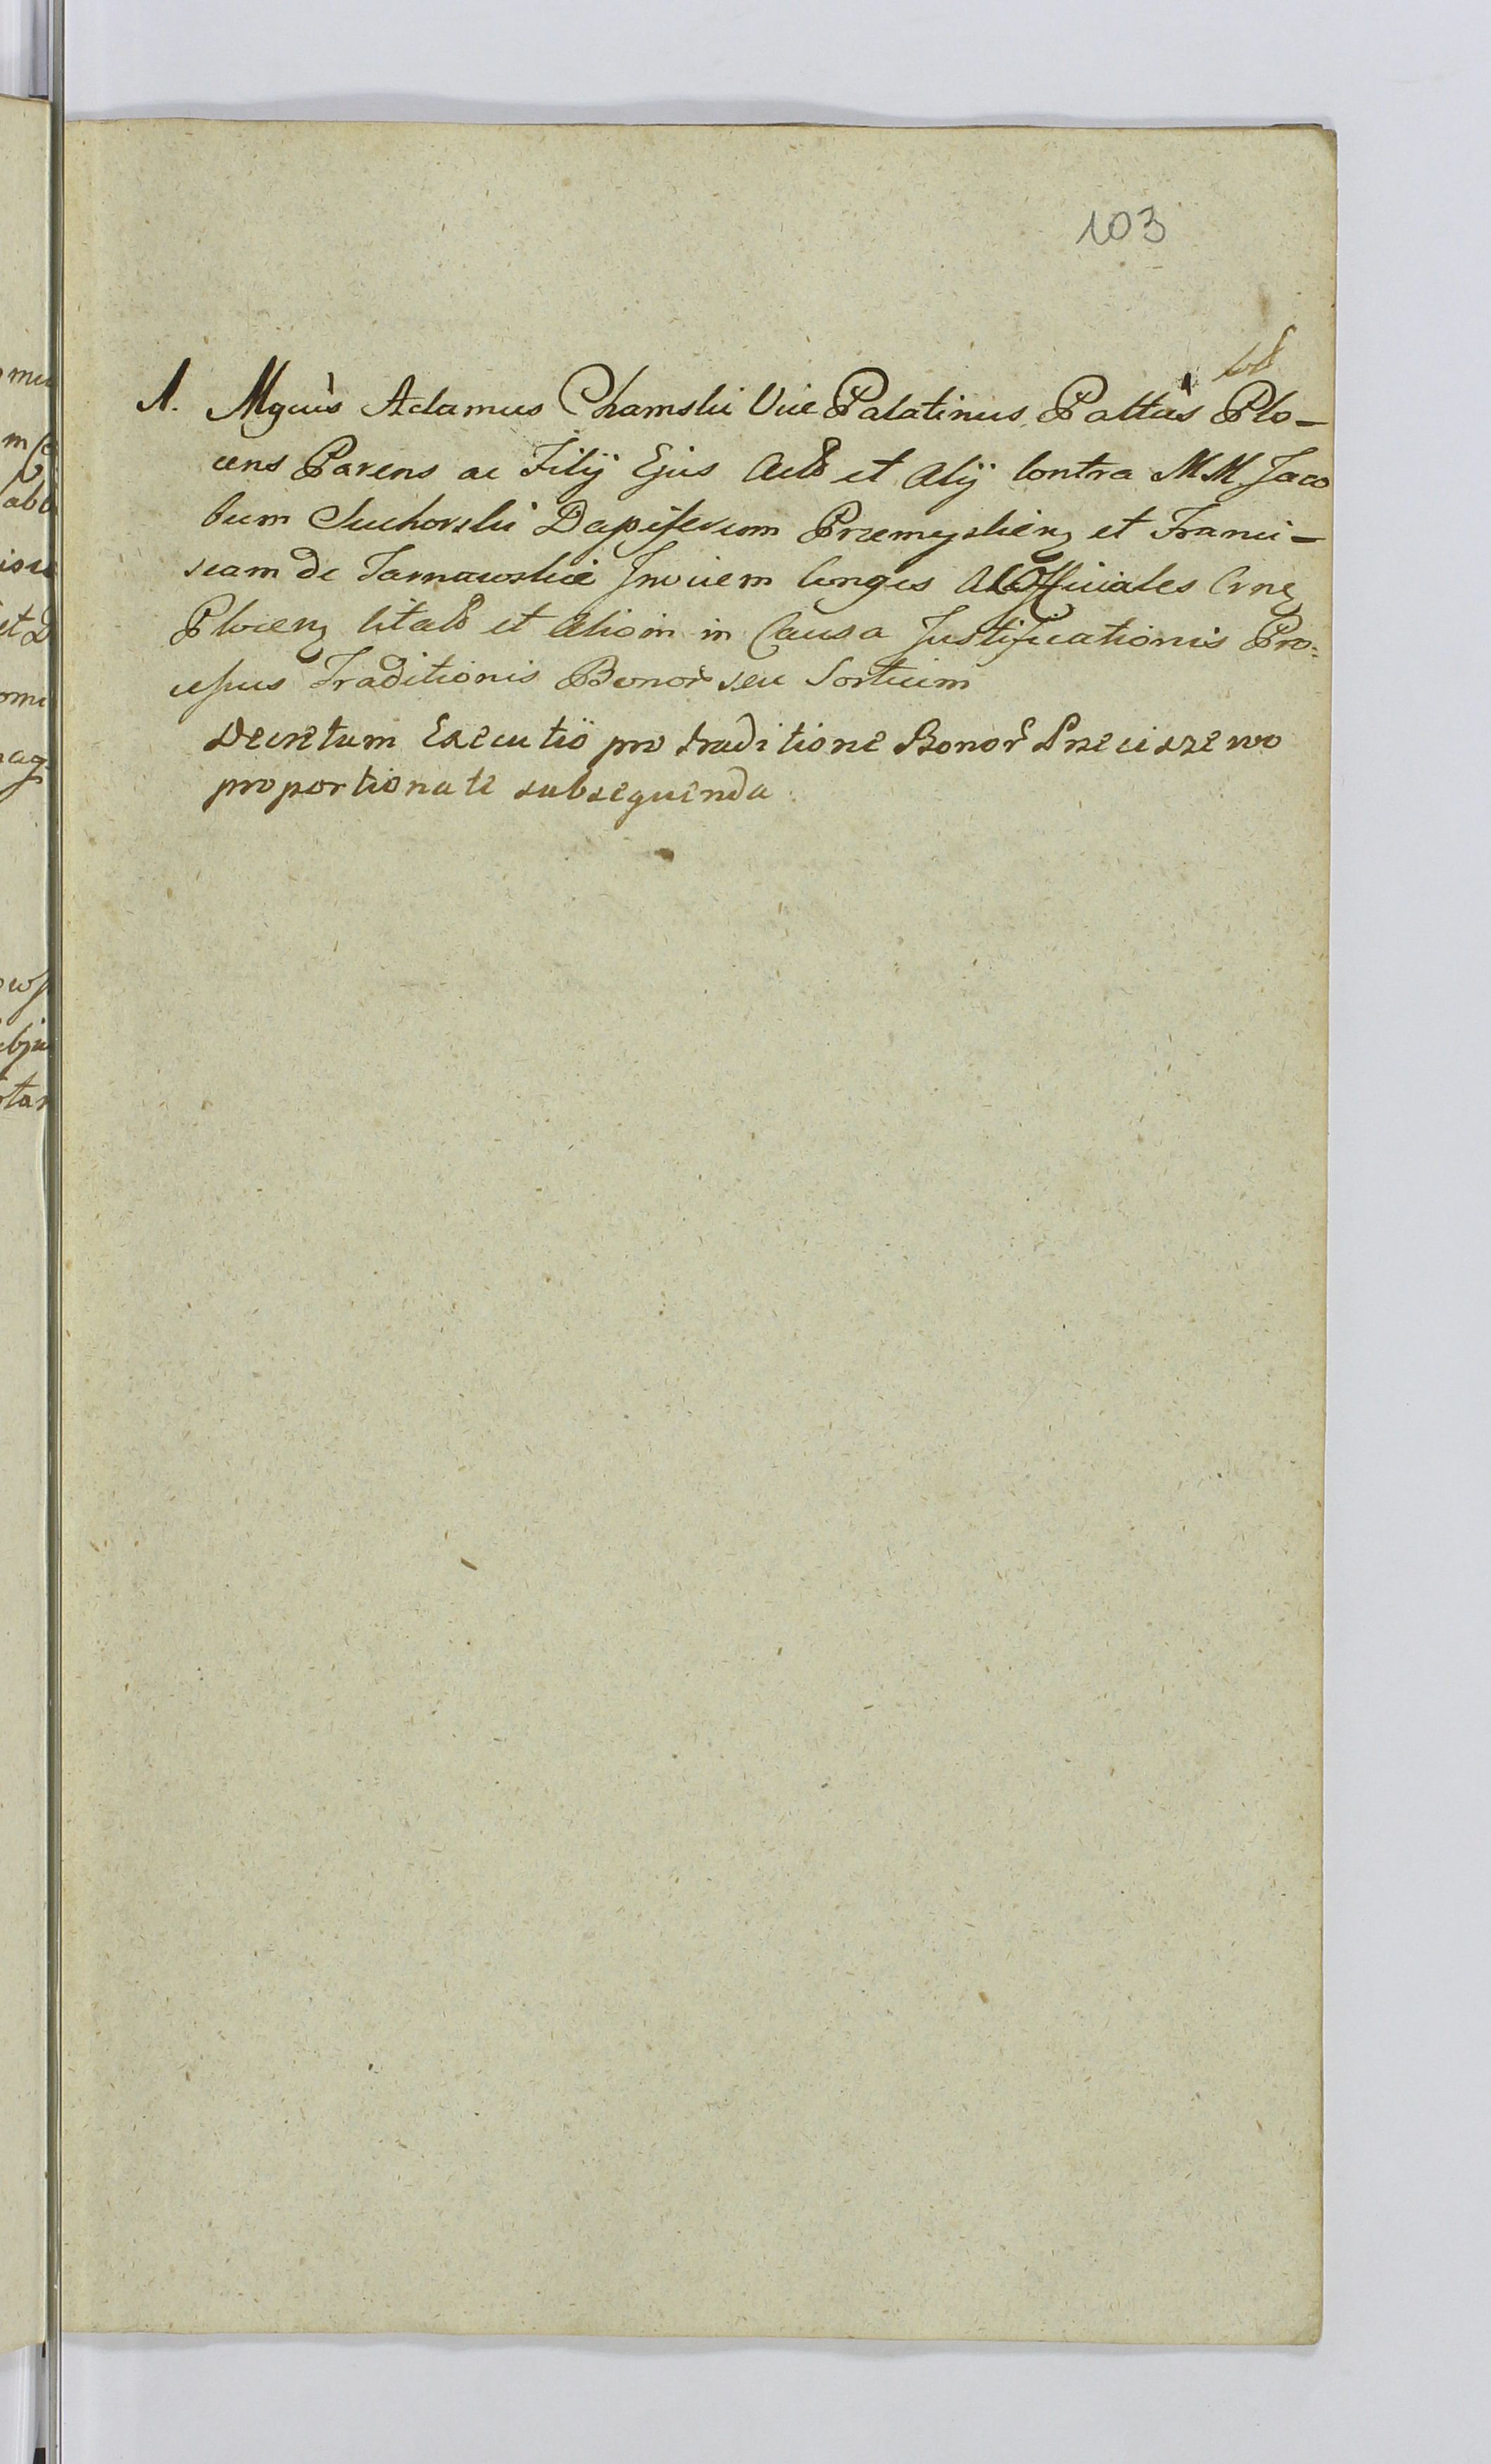 103
68
1. Mgcus Adamus Chamski Vice Palatinus Paltus Plo-
cens Parens ac Filij Ejus Act et Alij Contra MM Jaco
bum Suchorski Dapiferum Przemysliens et Franci-
scam de Tarnawskie Invicem Conges Officiales Crnes
Plocens Citat et Aliom in Causa Justificationis Pro-
cessus Traditionis Bonor seu Sortium
Decretum Executio pro traditione Bonor Przeciszewo
proportionate subsequenda